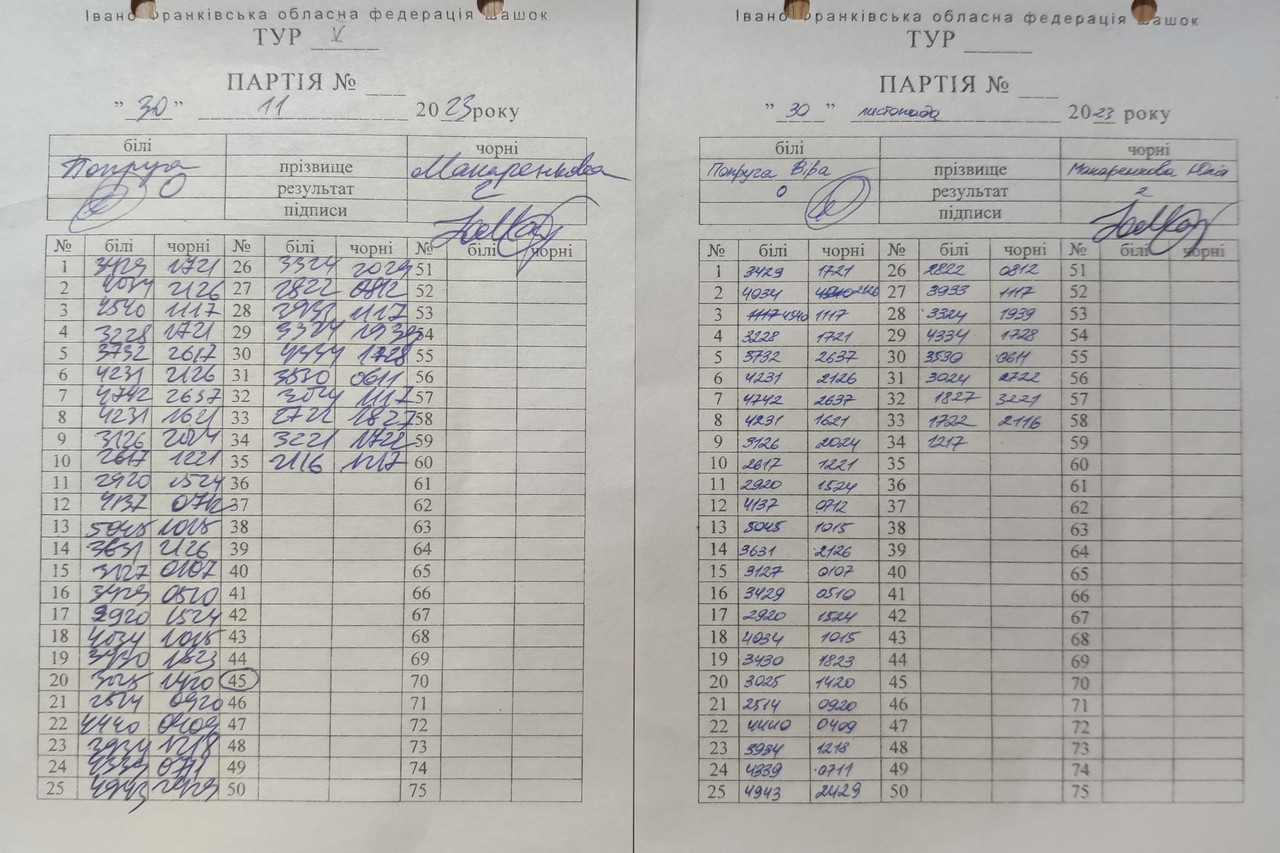 Івано Франківська обласна федерація шашок
ТУР V
ПАРТІЯ №
" 30 " 11 2023 року
білі чорні
Попруга прізвище Макаренкова
0 результат 2
підписи
№ білі чорні № білі чорні № білі чорні
1 3429 1721 26 3324 2029 51
2 4034 2126 27 2822 0812 52
3 4540 1117 28 3933 1117 53
4 3228 1721 29 3324 1939 54
5 3732 2617 30 4334 1728 55
6 4231 2126 31 3530 0611 56
7 4742 2637 32 3024 1117 57
8 4231 1621 33 2722 1827 58
9 3126 2024 34 3221 1722 59
10 2617 1221 35 2116 1217 60
11 2920 1524 36 61
12 4137 0712 37 62
13 5045 1015 38 63
14 3631 2126 39 64
15 3127 0107 40 65
16 3429 0510 41 66
17 2920 1524 42 67
18 4034 1015 43 68
19 3430 1823 44 69
20 3025 1420 45 70
21 2514 0920 46 71
22 4440 0409 47 72
23 3934 1218 48 73
24 4339 0711 49 74
25 4943 2429 50 75
Івано Франківська обласна федерація шашок
ТУР
ПАРТІЯ №
" 30 " листопада 2023 року
білі чорні
Попруга Віра прізвище Макаренкова Юлія
0 результат 2
підписи
№ білі чорні № білі чорні № білі чорні
1 3429 1721 26 2822 0812 51
2 4034 2126 27 3933 1117 52
3 1117 4540 1117 28 3324 1939 53
4 3228 1721 29 4334 1728 54
5 3732 2637 30 3530 0611 55
6 4231 2126 31 3024 2722 56
7 4742 2637 32 1827 3221 57
8 4231 1621 33 1722 2116 58
9 3126 2024 34 1217 59
10 2617 1221 35 60
11 2920 1524 36 61
12 4137 0712 37 62
13 5045 1015 38 63
14 3631 2126 39 64
15 3127 0107 40 65
16 3429 0510 41 66
17 2920 1524 42 67
18 4034 1015 43 68
19 3430 1823 44 69
20 3025 1420 45 70
21 2514 0920 46 71
22 4440 0409 47 72
23 3934 1218 48 73
24 4339 0711 49 74
25 4943 2429 50 75